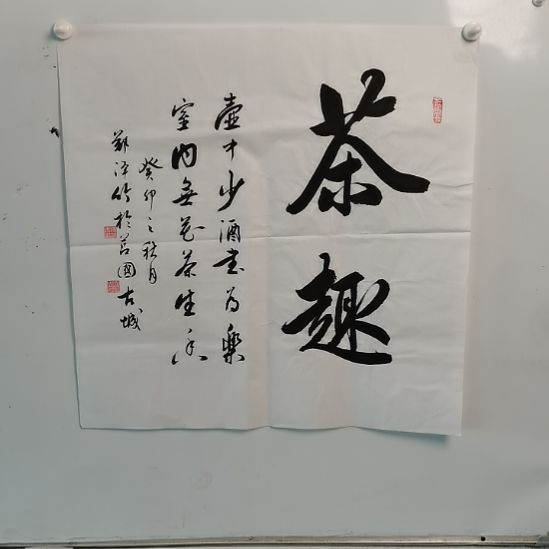 茶趣
壶中少酒书为乐
室内无花茶生香
癸卯之秋月
郑泽竹於莒国古城